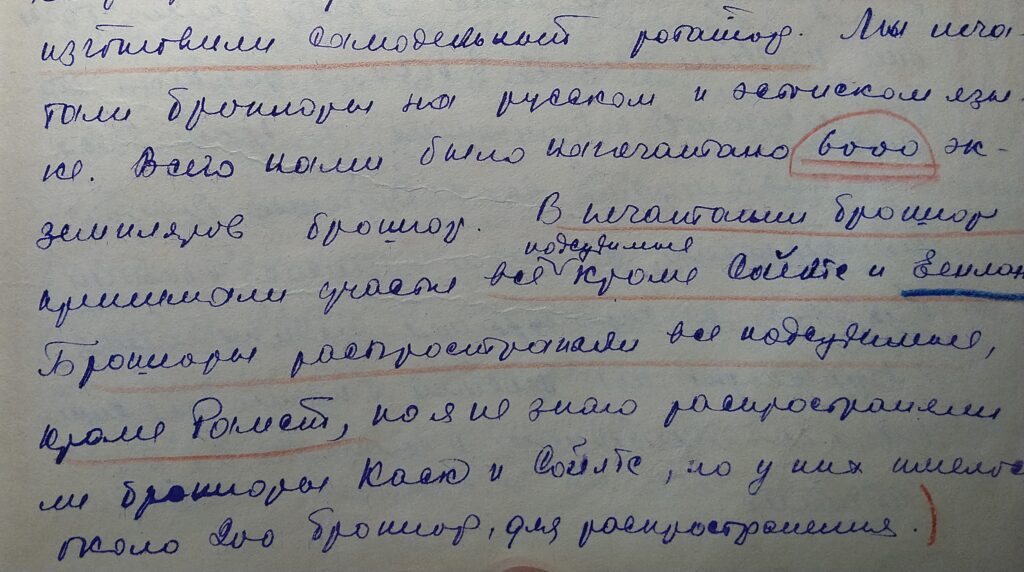 изготовили самодельный ротатор. Мы печа-
тали брошюры на русском и эстонском язы-
ке. Всего нами было напечатано 6000 эк-
земпляров брошюр. В печатании брошюр
подсудимые
принимали участие все кроме Сойятс и
Брошюры распространяли все подсудимые,
кроме Рамст, но я не знаю распространяли
ли брошюры Каск и Сойятс, но у них имелось
около 200 брошюр, для распространения.